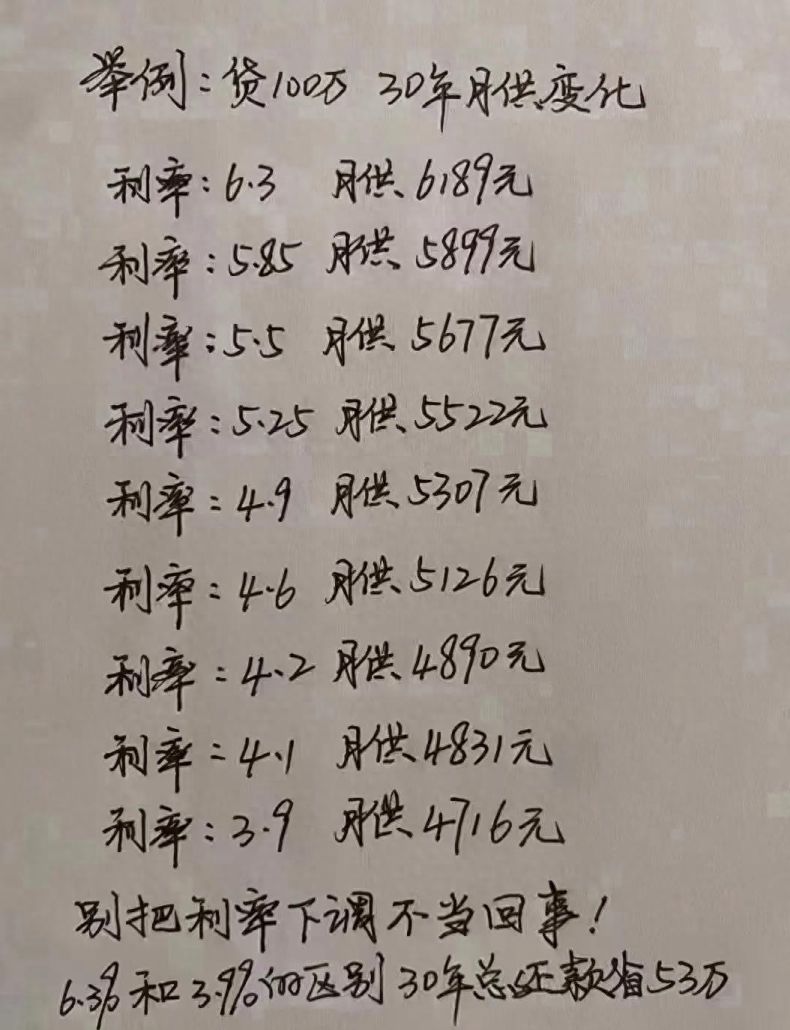 举例：贷100万 30年月供变化
利率：6.3 月供6189元
利率：5.85 月供5899元
利率：5.5 月供5677元
利率：5.25 月供5522元
利率：4.9 月供5307元
利率：4.6 月供5126元
利率：4.2 月供4890元
利率：4.1 月供4831元
利率：3.9 月供4716元
别把利率下调不当回事！
6.3%和3.9%的区别30年总还款省53万